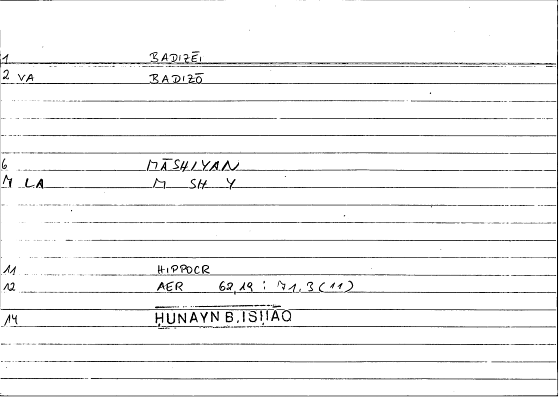 1 BADIZĒI
2 VA BADIZŌ
6 MĀSHIYAN
7 LA M SH Y
11 HIPPOCR
12 AER 62,19 : 71,3 (11)
14 ḤUNAYN B.ISḤAQ